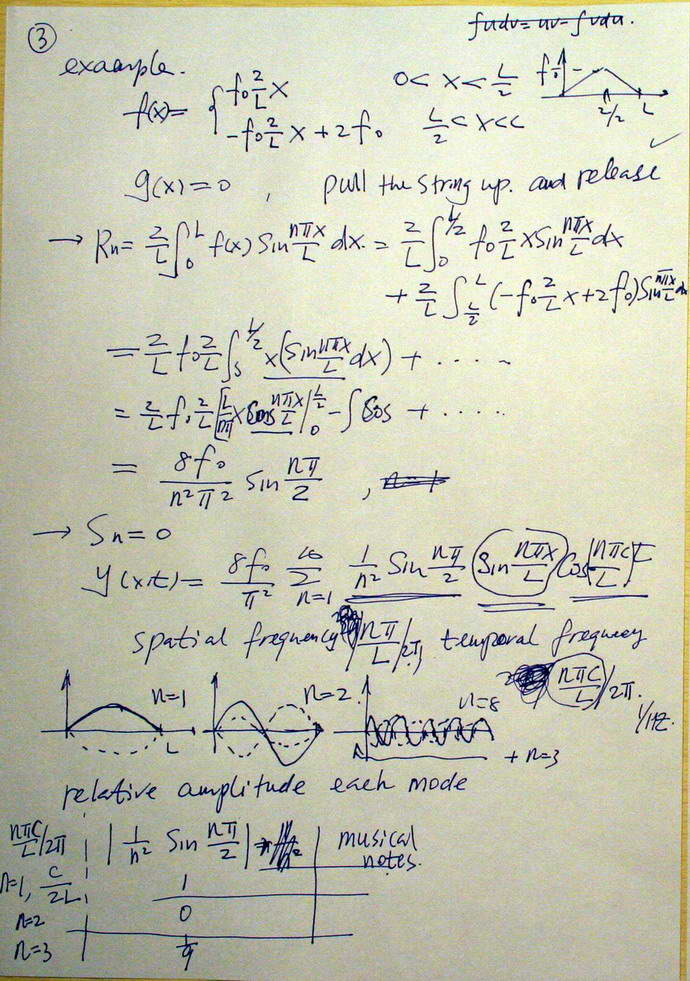 ③
∫udv = uv - ∫vdu.
exaample.
f(x)= { f₀ 2/L x    0 < x < L/2
-f₀ 2/L x + 2f₀    L/2 < x < L
f₀
L/2 L
g(x) = 0 , pull the string up. and release ✓
→ Rn = 2/L ∫₀ᴸ f(x) Sin nπx/L dx. = 2/L ∫₀^(L/2) f₀ 2/L x Sin nπx/L dx
+ 2/L ∫_(L/2)^L (-f₀ 2/L x + 2f₀) Sin nπx/L dx
= 2/L f₀ 2/L ∫^(L/2) x (Sin nπx/L dx) + ....
= 2/L f₀ 2/L [L/nπ x Cos nπx/L |₀^(L/2) - ∫ Cos + ....
= 8f₀/n²π² Sin nπ/2 , n=1
→ Sn = 0
y(x,t) = 8f₀/π² ∞Σn=1 1/n² Sin nπ/2 (Sin nπx/L) Cos(nπc/L)t
spatial frequency (nπ/L)/2π, temporal frequecy
(nπc/L)/2π.
1/Hz
n=1 L n=2. n=8
+ n=3
relative amplitude each mode
nπc/L /2π | |1/n² Sin nπ/2| | musical notes.
n=1, c/2L 1
n=2 0
n=3 1/9